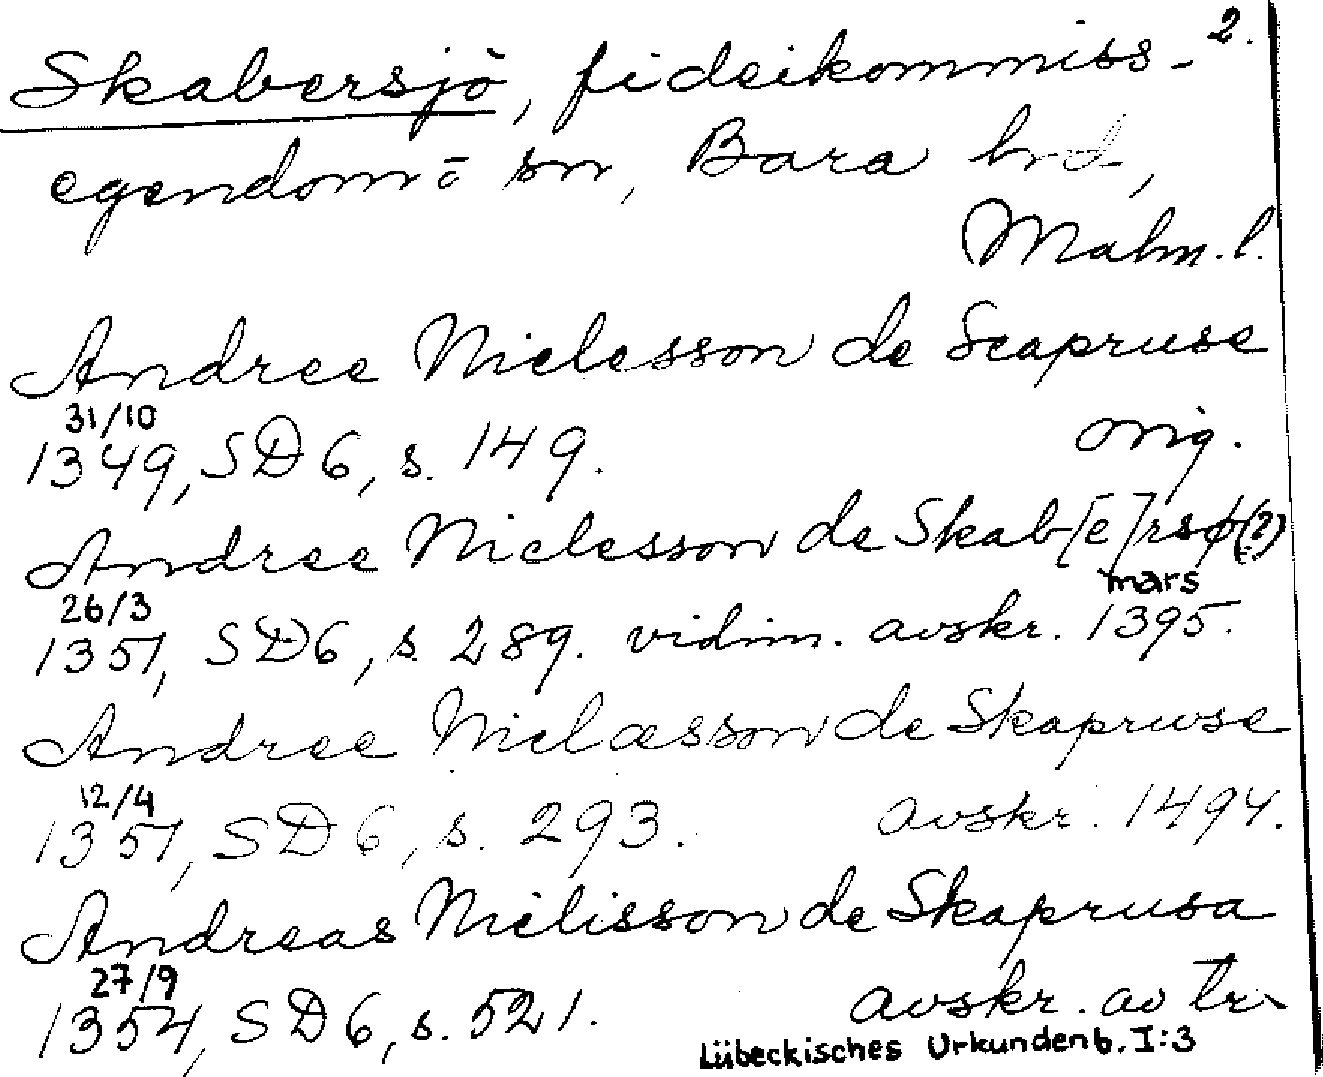 2.
Skabersjö, fideikommiss-
egendom ö sn, Bara hrd,
Malm. l.
Andree Nielesson de Scapruse
31/10
1349, SD 6, s. 149. orig.
Andree Nielesson de Skab[e]rsø(?)
26/3 mars
1351, SD6, s. 289. vidim. avskr. 1395.
Andree Nielæsson de Skapruse
12/4
1351, SD 6, s. 293. avskr. 1494.
Andreas Nielisson de Skaprusa
27/9
1354, SD 6, s. 521. avskr. av tr.
Lübeckisches Urkundenb. I:3